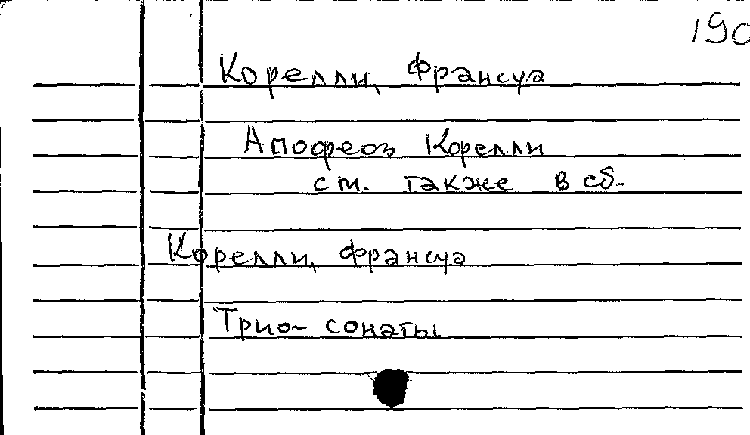 190
Корелли, Франсуа
Апофеоз Корелли
см. также в сб.
Корелли, Франсуа
Трио-сонаты